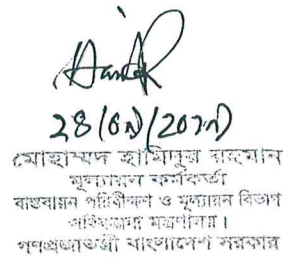 মোহাম্মদ হামিদুর রহমান
মূল্যায়ন কর্মকর্তা
বাস্তবায়ন পরিবীক্ষণ ও মূল্যায়ন বিভাগ
পরিকল্পনা মন্ত্রণালয়।
গণপ্রজাতন্ত্রী বাংলাদেশ সরকার